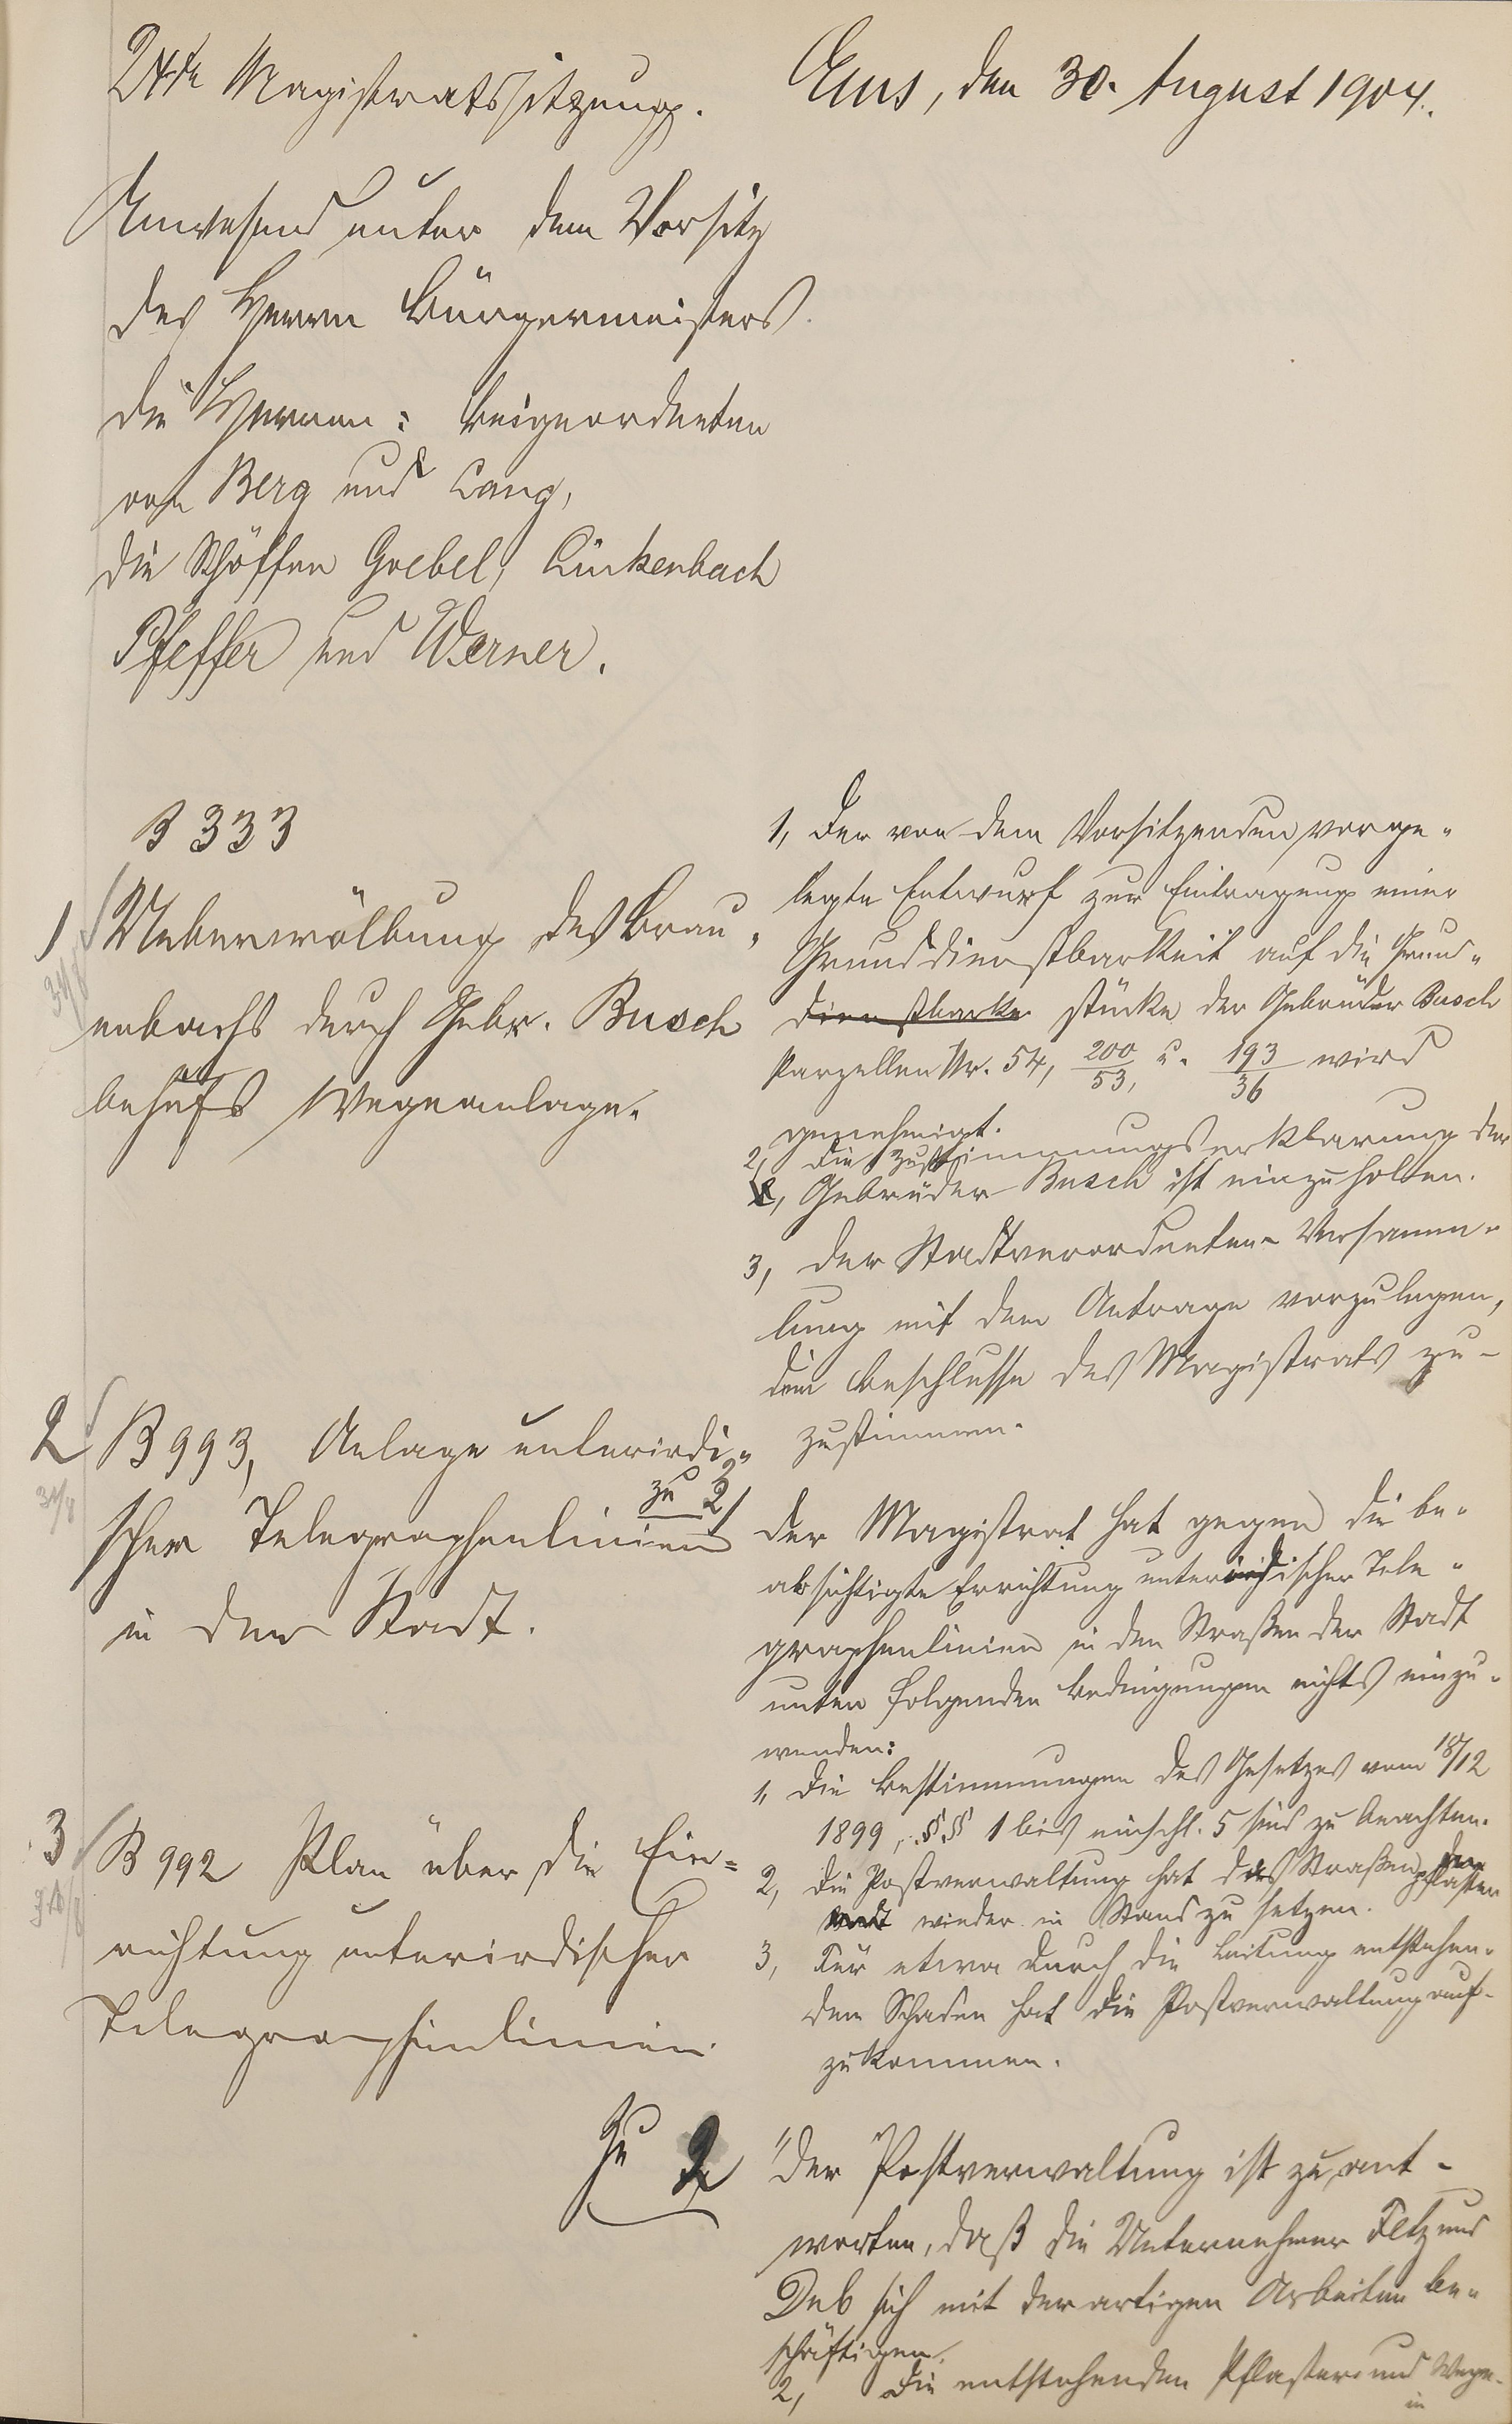 24te Magistratssitzung.
Ems, den 30. August 1904.
Anwesend unter dem Vorsitz
des Herrn Bürgermeisters
die Herren: Beigeordneten
von Berg und Lang,
die Schöffen Goebel, Linkenbach
Pfeffer und Werner.
B 333
1 Ueberwölbung des Brau„
31/8
enbachs durch Gebr. Busch
behufs Wegeanlage.
1, Der von dem Vorsitzenden vorge„
legte Entwurf zur Eintragung einer
Grunddienstbarkeit auf die Grund„
dienstbarke stücke der Gebrüder Busch
Parzellen Nr. 54, 200/53, u. 193/36 wird
genehmigt.
2, Die Zustimmungserklärung der
Gebrüder Busch ist einzuholen.
3, Der Stadtverordneten-Versamm„
lung mit dem Antrage vorzulegen,
dem Beschlusse des Magistrats zu-
zustimmen.
2 B 993, Anlage unterirdi„
31/8
scher Telegraphenlinien
in der Stadt.
zu 2
Der Magistrat hat gegen die be„
absichtigte Errichtung unterirdischer Tele„
graphenlinien in den Straßen der Stadt
unter folgenden Bedingungen nichts einzu„
wenden:
1, Die Bestimmungen des Gesetzes vom 18/12
1899, §§ 1 bis einschl. 5 sind zu beachten.
2, Die Postverwaltung hat das Straßenpflaster
wieder in Stand zu setzen.
3, Für etwa durch die Leitung entstehen„
den Schaden hat die Postverwaltung auf-
zukommen.
3 B 992 Plan über die Ein=
31/8
richtung unterirdischer
Telegraphenlinien.
Zu 3
1, Der Postverwaltung ist zu ant-
worten, daß die Unternehmer Feltz und
Deb sich mit derartigen Arbeiten be„
schäftigen.
2, Die entstehenden Pflaster und Wege-
in